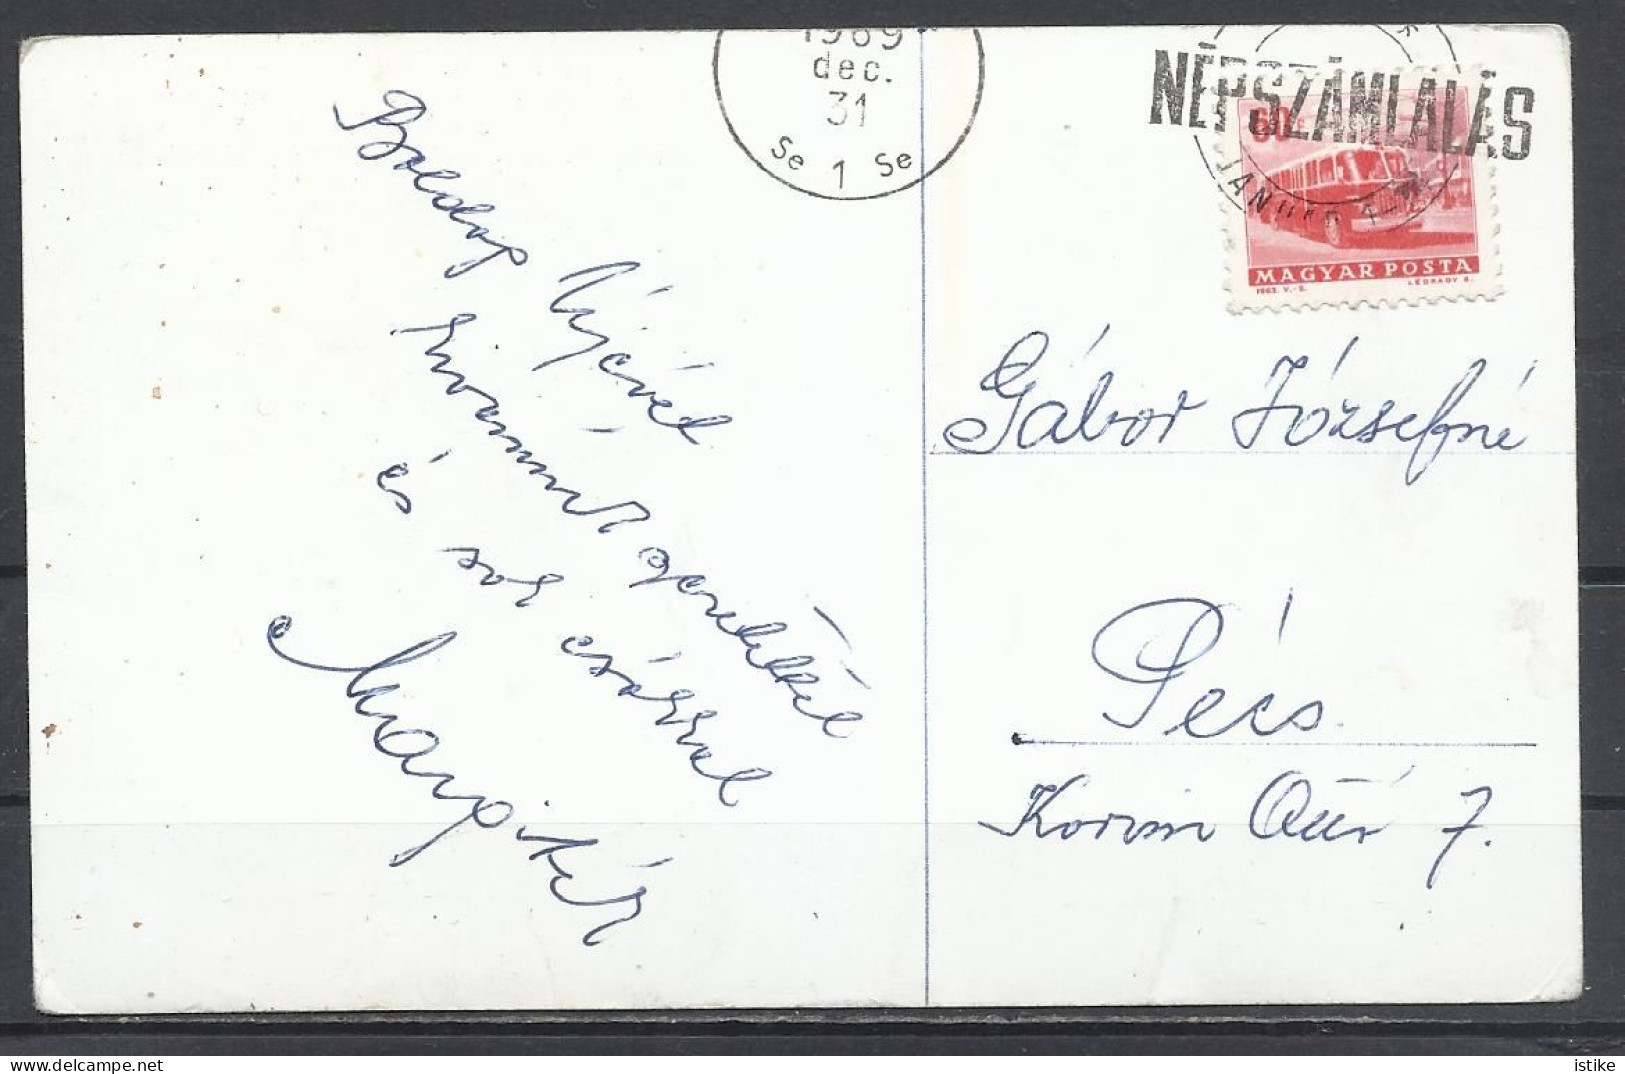 1969
dec.
31
Se 1 Se
NÉPSZÁMLÁLÁS
JANUÁR 1-
60
MAGYAR POSTA
1963. V.-S. LÉGRÁDY S.
Boldog Újévet
kívánunk szeretettel
és sok csókkal
Gábor Józsefné
Pécs
Korvin Ottó 7.
istike